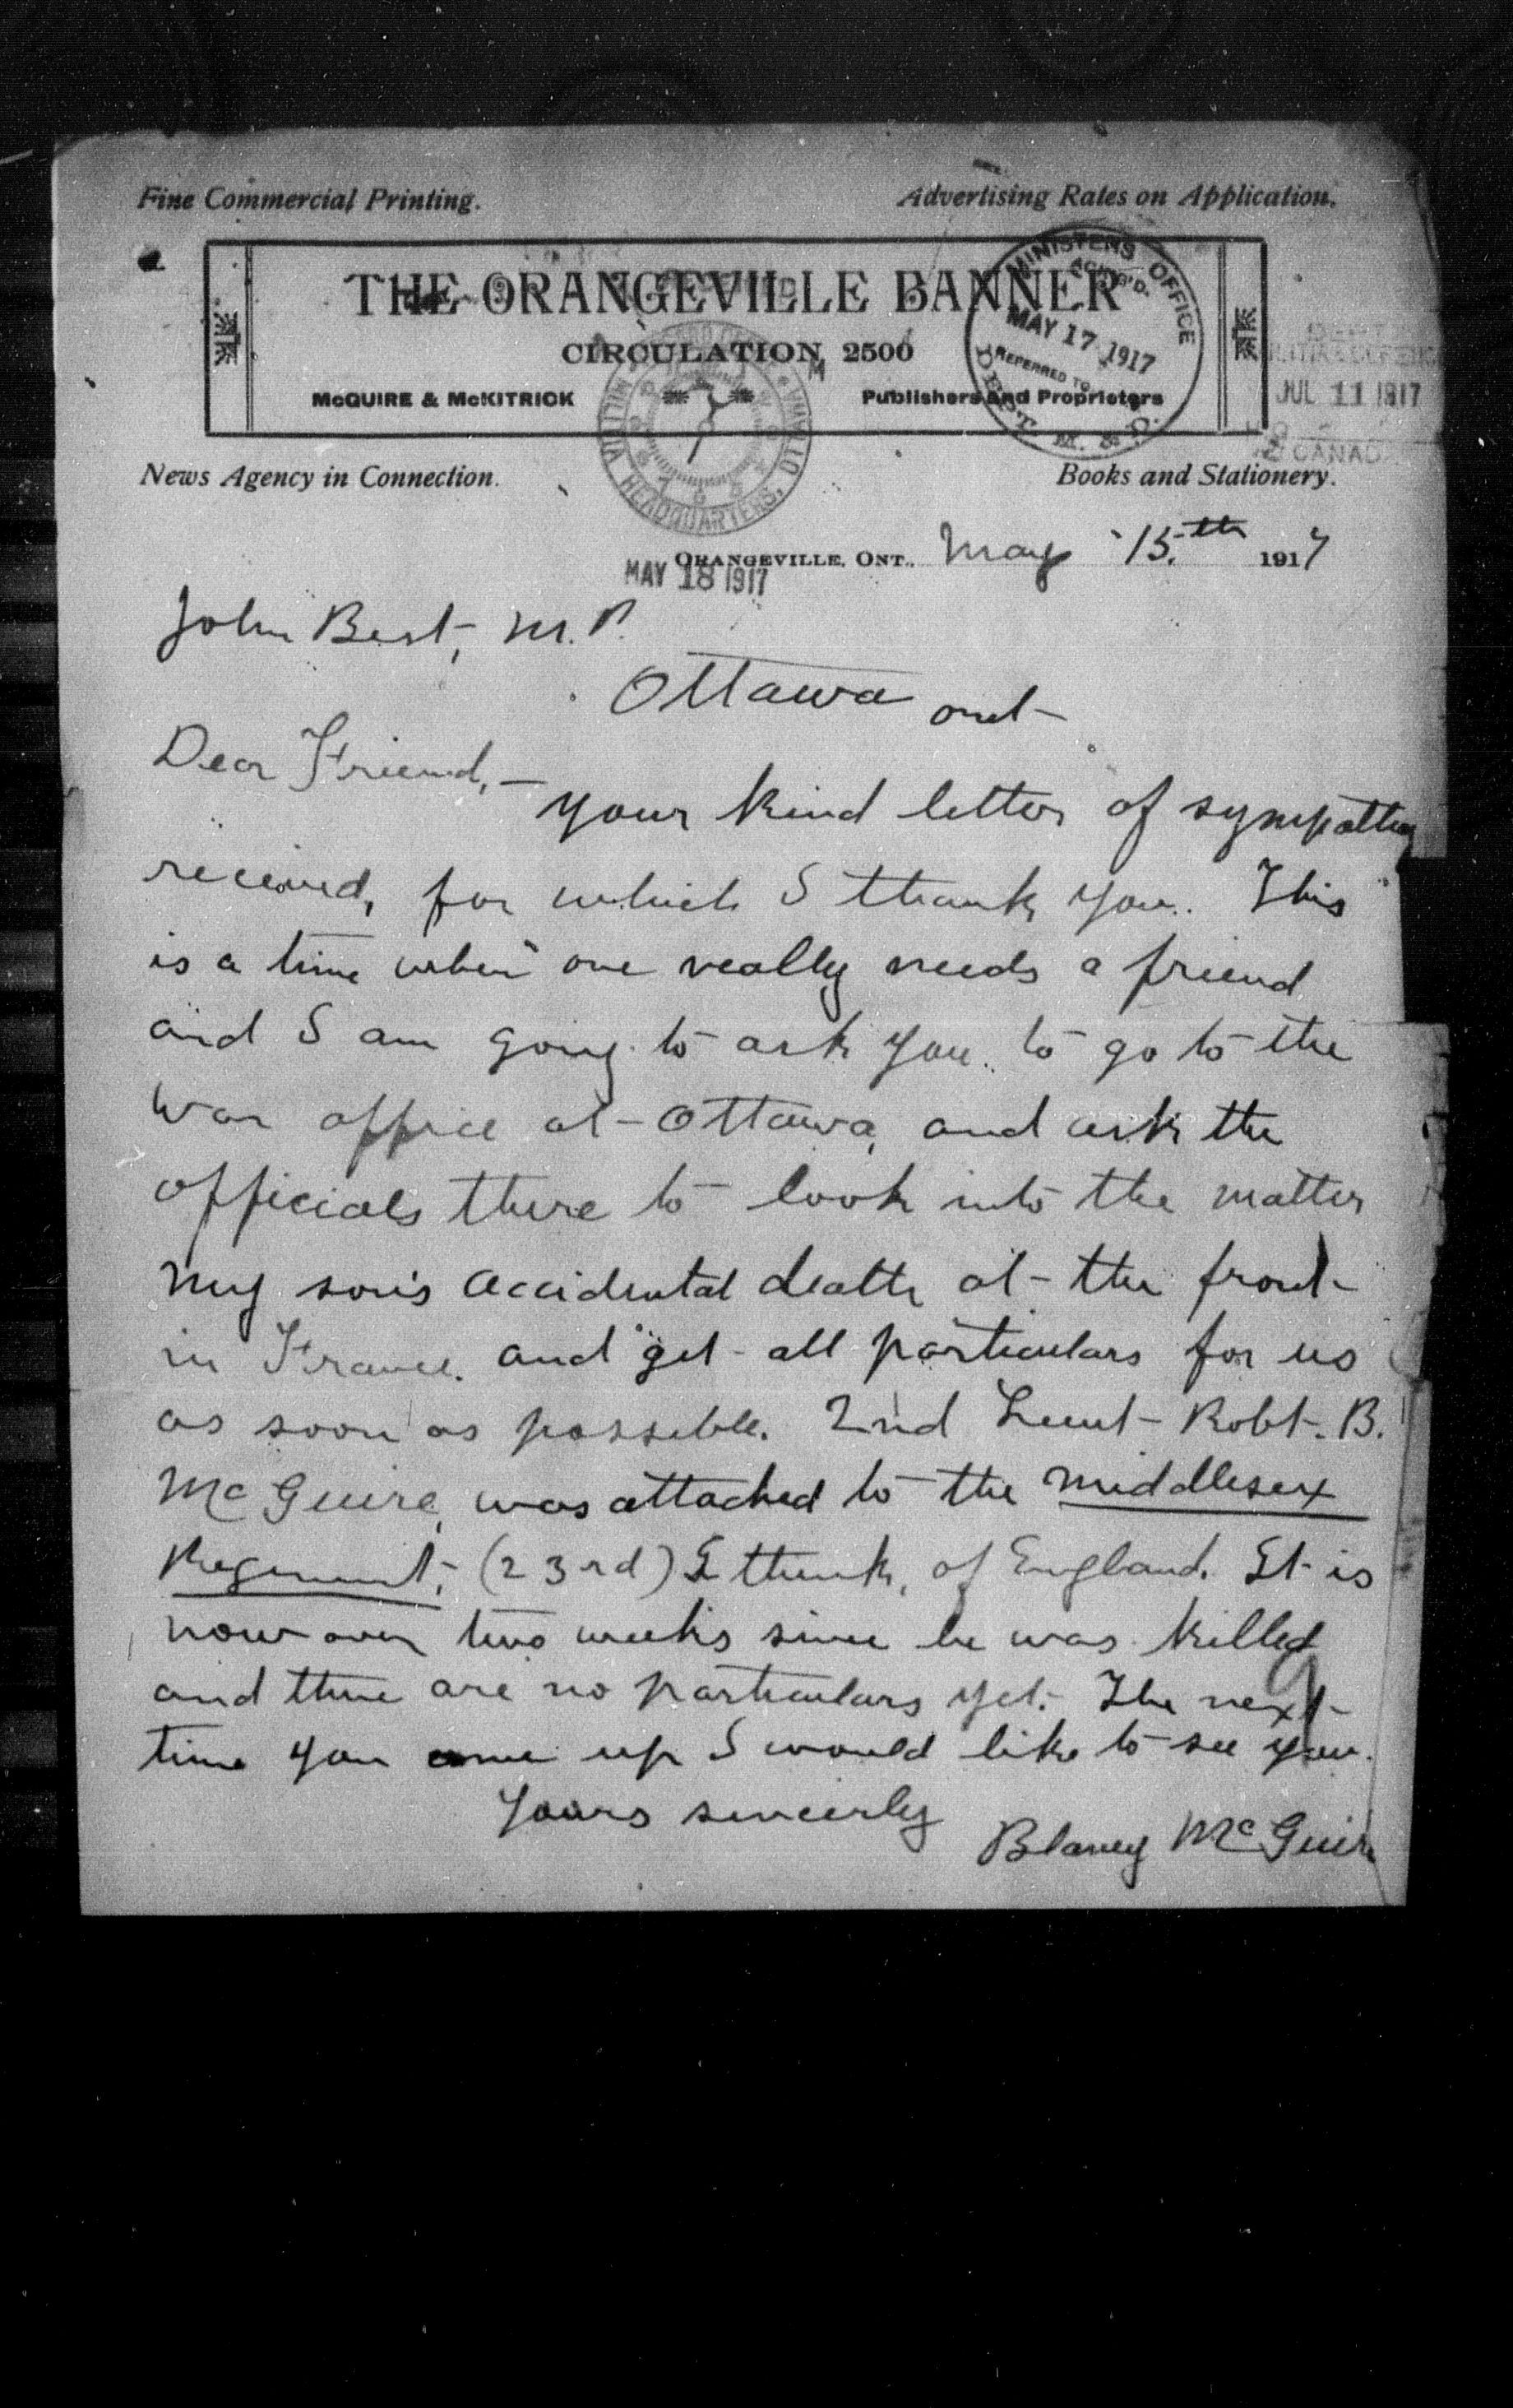 Fine Commercial Printing.
Advertising Rates on Application.
THE ORANGEVILLE BANNER
CIRCULATION 2500
McGUIRE & McKITRICK
Publishers and Proprietors
MINISTERS OFFICE
ACK'G'D.
MAY 17 1917
REFERRED TO
DEPT. M. & D.
JUL 11 1917
CANADA
News Agency in Connection.
Books and Stationery.
MILITIA HEADQUARTERS, OTTAWA
MAY 18 1917
ORANGEVILLE, ONT., May 15th 1917
John Best, M.P.
Ottawa Ont
Dear Friend,—
Your kind letter of sympathy
received, for which I thank you. This
is a time when one really needs a friend
and I am going to ask you to go to the
War office at Ottawa, and ask the
officials there to look into the matter
my son's accidental death at the front
in France. and get all particulars for us
as soon as possible. 2nd Lieut Robt. B.
McGuire, was attached to the Middlesex
Regiment, (23rd) I think, of England. It is
now over two weeks since he was killed
and there are no particulars yet. The next
time you come up I would like to see you.
Yours sincerly
Blaney McGuire